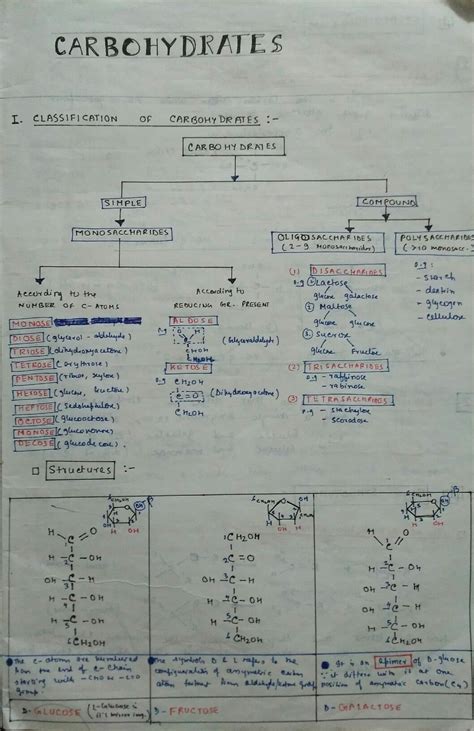 CARBOHYDRATES
I. CLASSIFICATION OF CARBOHYDRATES :-
CARBOHYDRATES
SIMPLE
COMPOUND
MONOSACCHARIDES
OLIGOSACCHARIDES
(2-9 Monosaccharides)
POLYSACCHARIDES
(>10 monosacc.)
According to the
NUMBER OF C-ATOMS
According to
REDUCING GR. PRESENT
(1) DISACCHARIDES
e.g ① Lactose
glucose galactose
2 Maltose
glucose glucose
③ Sucrose
glucose Fructose
e.g :
- starch
- dextrin
- glycogen
- cellulose
MONOSE
DIOSE (glycerol-aldehyde)
TRIOSE (dihydroxyacetone)
TETROSE (erythrose)
PENTOSE (ribose, xylose)
HEXOSE (glucose, fructose)
HEPTOSE (Sedoheptulose)
OCTOSE (glucooctose)
NONOSE (gluconose)
DECOSE (glucodecose)
ALDOSE
e.g.
H O
C
CHOH
CH₂OH
(Glyceraldehyde)
KETOSE
e.g - CH₂OH
C=O
CH₂OH
(Dihydroxyacetone)
(2) TRISACCHARIDES
e.g - raffinose
- rabinose
(3) TETRASACCHARIDES
e.g - stachylose
- scorodose
Structures :-
6CH₂OH
OH
β
H C O
H - C - OH
OH - C - H
H - C - OH
H - C - OH
6CH₂OH
1CH₂OH
2C=O
OH - C - H
H - C - OH
H - C - OH
6CH₂OH
6CH₂OH
OH
β
H C O
H - C - OH
OH - C - H
OH - C - H
H - C - OH
6CH₂OH
The C-atoms are
from the end of C-chain
starting with -CHOH
group.
D-GLUCOSE
The symbols D & L refers to the
configuration of asymmetric carbon
atom furthest from aldehyde/ketone group
D- FRUCTOSE
It is an Epimer of D-glucose
∵ it differs with it at one
position of asymmetric carbon (C₄)
D- GALACTOSE